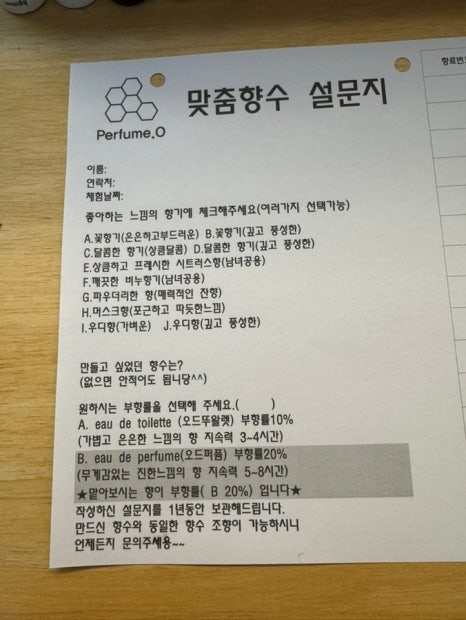 woody
Perfume.O
맞춤향수 설문지
이름:
연락처:
체험날짜:
좋아하는 느낌의 향기에 체크해주세요(여러가지 선택가능)
A.꽃향기(은은하고부드러운) B.꽃향기(깊고 풍성한)
C.달콤한 향기(상큼달콤) D.달콤한 향기(깊고 풍성한)
E.상큼하고 프레시한 시트러스향(남녀공용)
F.깨끗한 비누향기(남녀공용)
G.파우더리한 향(매력적인 잔향)
H.머스크향(포근하고 따듯한느낌)
I.우디향(가벼운) J.우디향(깊고 풍성한)
만들고 싶었던 향수는?
(없으면 안적어도 됩니당^^)
원하시는 부향률을 선택해 주세요.( )
A. eau de toilette (오드뚜왈렛) 부향률10%
(가볍고 은은한 느낌의 향 지속력 3~4시간)
B. eau de perfume(오드퍼퓸) 부향률20%
(무게감있는 진한느낌의 향 지속력 5~8시간)
★맡아보시는 향이 부향률( B 20%) 입니다★
작성하신 설문지를 1년동안 보관해드립니다.
만드신 향수와 동일한 향수 조향이 가능하시니
언제든지 문의주세용~~